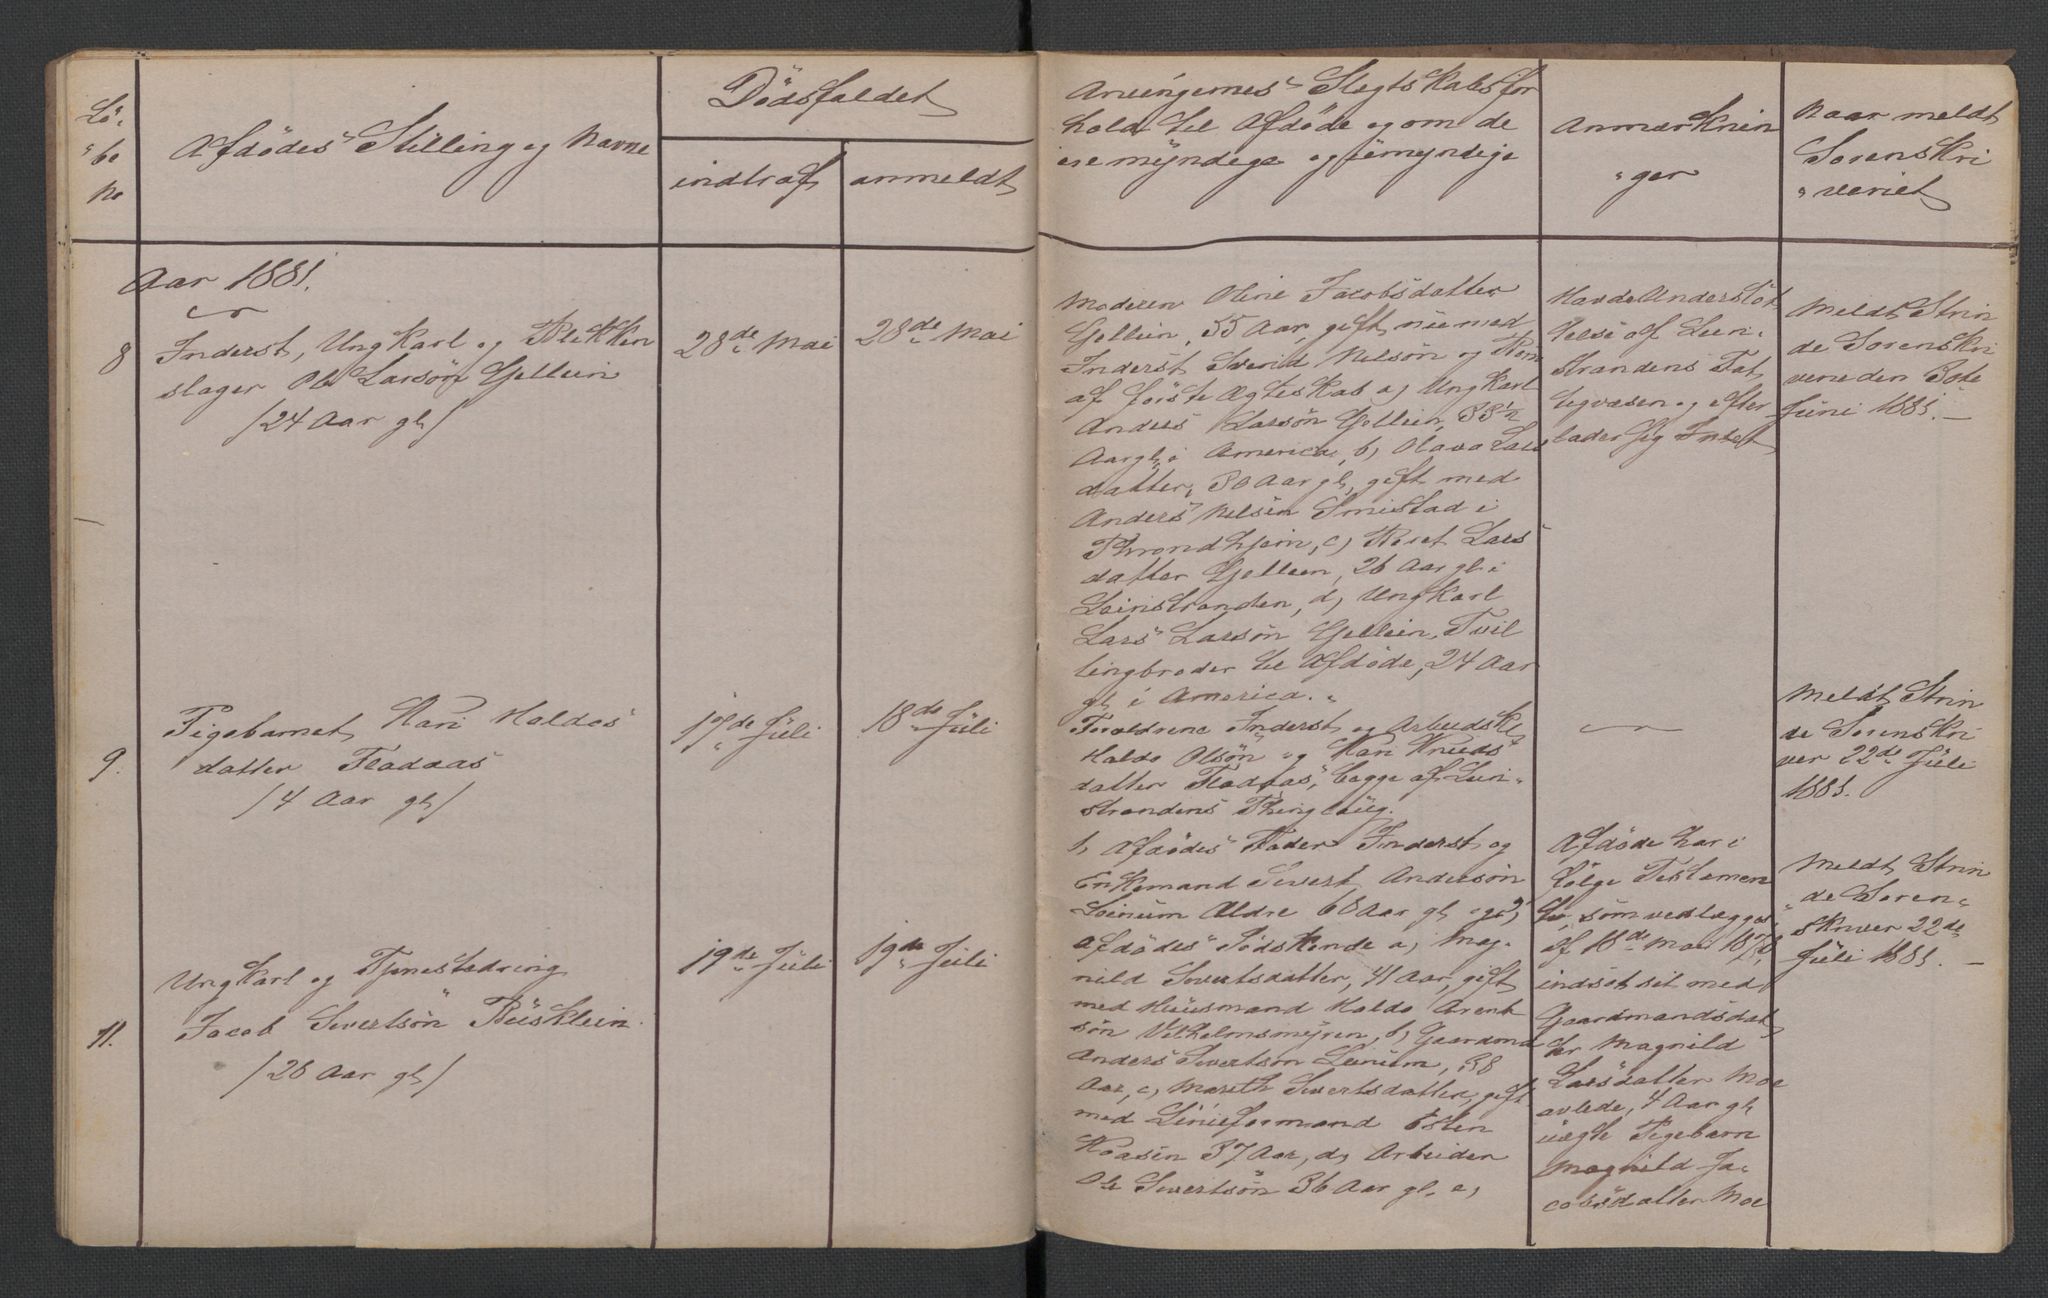 Lö-
"be
No
Afdödes Stilling og Navne
Dödsfaldet
indtraf
anmeldt
Arvingernes Slegtskabsfor
hold til Afdöde og om de
ere myndige og umyndige
Anmærknin
"ger
Naar meldt
Sorenskri
"veriet
Aar 1881.
8
Inderst, Ungkarl og Blikken
slager Ole Larsön Gellein
/24 Aar gl/
28de Mai
28de Mai
Moderen Oline Jacobsdatter
Gellein, 55 Aar, gift nu med
Inderst Sivert Nelsön og
af förste Ægteskab a, Ungkarl
Anders Larsön Gellein, 33½
Aar gl. i America, b, Olava Lars
datter, 30 Aar gl, gift med
Anders Nelsön Smistad i
Throndhjem, c, Beret Lars
datter Gellein, 26 Aar gl. i
Leinstranden, d, Ungkarl
Lars Larsön Gellein, Tvil
lingbroder til Afdöde, 24 Aar
gl i America.
Havde Understöt
telse af Lein-
strandens Fat
tigvæsen og efter
lader sig Intet
Meldt Strin
de Sorenskri
veren den 30te
Juni 1881.
9.
Pigebarnet Kari Haldos
datter Fladaas
/4 Aar gl/
17de Juli
18de Juli
Forældrene Inderst og Arbeidsk.
Haldo Olsön og Kari Knuds
datter Fladaas, begge af Lein-
strandens Thinglaug.
Meldt Strin
de Sorenskri
ver 22de Juli
1881.
11.
Ungkarl og
Jacob Sivertsön
/28 Aar gl/
19de Juli
19de Juli
1, Afdödes Fader Inderst og
Enkemand Sivert Andersön
Leinum Ældre 68 Aar gl og 2,
Afdödes Södskende a, Mag-
nild Sivertsdatter, 41 Aar, gift
med Huusmand Haldo Arent
sön Vilhelmsmyren, b, Gaardmd
Anders Sivertsön Leinum, 38
Aar, c, Mareth Sivertsdatter, gift
med Linieformand Esten
37 Aar, d, Arbeider
Ole Sivertsön 36 Aar gl. e,
Afdöde har i
fölge Testemen
te, som vedlægges
af 18de Mai 1878,
indsat sit med
Gaardmandsdat
ter Magnild
Larsdatter Moe
avlede, 4 Aar gl,
uægte Pigebarn
Magnild Ja-
cobsdatter Moe
Meldt Strin
"de Soren-
skriver 22de
Juli 1881.